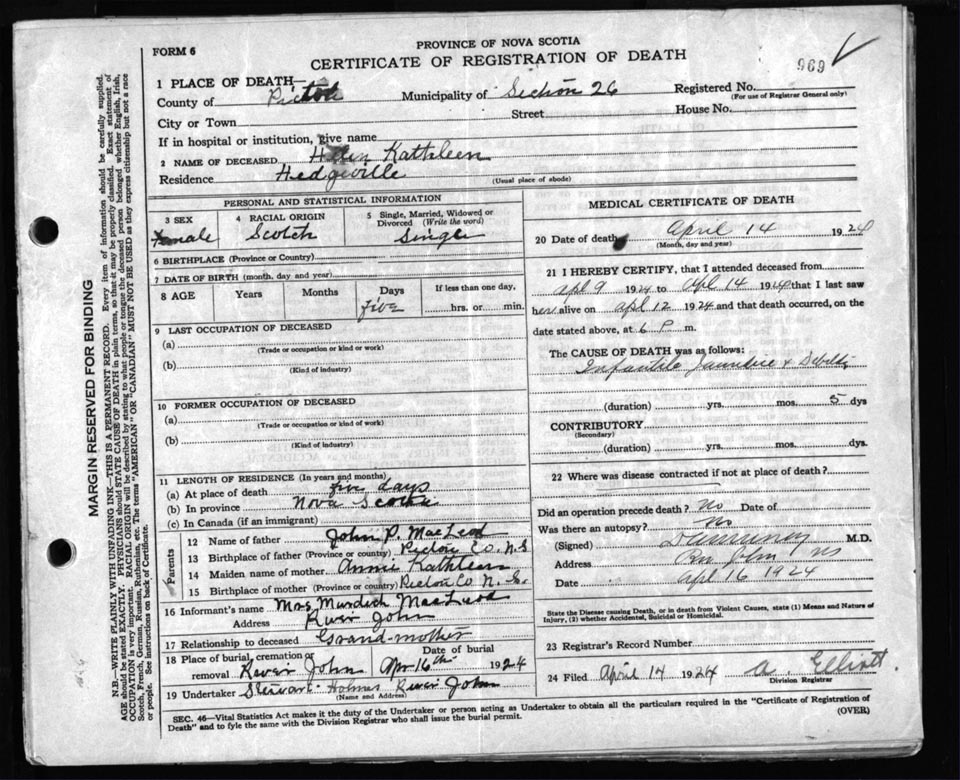 PROVINCE OF NOVA SCOTIA
FORM 6
CERTIFICATE OF REGISTRATION OF DEATH
969
1 PLACE OF DEATH—
County of Pictou Municipality of Section 26 Registered No.
(For use of Registrar General only)
City or Town Street House No.
If in hospital or institution, give name
2 NAME OF DECEASED Kathleen
Residence Hedgeville (Usual place of abode)
PERSONAL AND STATISTICAL INFORMATION
3 SEX Female
4 RACIAL ORIGIN Scotch
5 Single, Married, Widowed or Divorced (Write the word) Single
6 BIRTHPLACE (Province or Country)
7 DATE OF BIRTH (month, day and year)
8 AGE Years Months Days If less than one day,
five hrs. or min.
9 LAST OCCUPATION OF DECEASED
(a)
(Trade or occupation or kind or work)
(b)
(Kind of industry)
10 FORMER OCCUPATION OF DECEASED
(a)
(Trade or occupation or kind of work)
(b)
(Kind of industry)
11 LENGTH OF RESIDENCE (In years and months)
(a) At place of death five days
(b) In province Nova Scotia
(c) In Canada (if an immigrant)
Parents
12 Name of father John P. MacLeod
13 Birthplace of father (Province or country) Pictou Co. N.S
14 Maiden name of mother Annie Kathleen
15 Birthplace of mother (Province or country) Pictou Co N.S.
16 Informant's name Mrs Murdick MacLeod
Address River John
17 Relationship to deceased Grand-mother
18 Place of burial, cremation or removal River John Date of burial Apr 16th 1924
19 Undertaker Stewart Holmes River John
(Name and Address)
MEDICAL CERTIFICATE OF DEATH
20 Date of death April 14 1924
(Month, day and year)
21 I HEREBY CERTIFY, that I attended deceased from
apl 9 1924 to apl 14 1924 that I last saw
her alive on apl 12 1924 and that death occurred, on the
date stated above, at 6 P m.
The CAUSE OF DEATH was as follows:
Infantile Jaundice & Debility
(duration) yrs. mos. 5 dys
CONTRIBUTORY
(Secondary)
(duration) yrs. mos. dys.
22 Where was disease contracted if not at place of death?
Did an operation precede death? no Date of
Was there an autopsy? no
(Signed) M.D.
Address Riv John NS
Date apl 16 1924
State the Disease causing Death, or in death from Violent Causes, state (1) Means and Nature of
Injury, (2) whether Accidental, Suicidal or Homicidal.
23 Registrar's Record Number
24 Filed April 14 1924 A. Elliott
Division Registrar
SEC. 46—Vital Statistics Act makes it the duty of the Undertaker or person acting as Undertaker to obtain all the particulars required in the "Certificate of Registration of
Death" and to fyle the same with the Division Registrar who shall issue the burial permit.
(OVER)
MARGIN RESERVED FOR BINDING
N.B.—WRITE PLAINLY WITH UNFADING INK—THIS IS A PERMANENT RECORD. Every item of information should be carefully supplied.
AGE should be stated EXACTLY. PHYSICIANS should STATE CAUSE OF DEATH in plain terms, so that it may be properly classified. Exact statement of
OCCUPATION is very important. RACIAL ORIGIN will be described by stating to what people or tongue the deceased person belonged whether English, Irish,
Scotch, French, German, Russian, Ruthenian, etc. The terms "AMERICAN" OR "CANADIAN" MUST NOT BE USED as they express citizenship but not a race
or people. See instructions on back of Certificate.